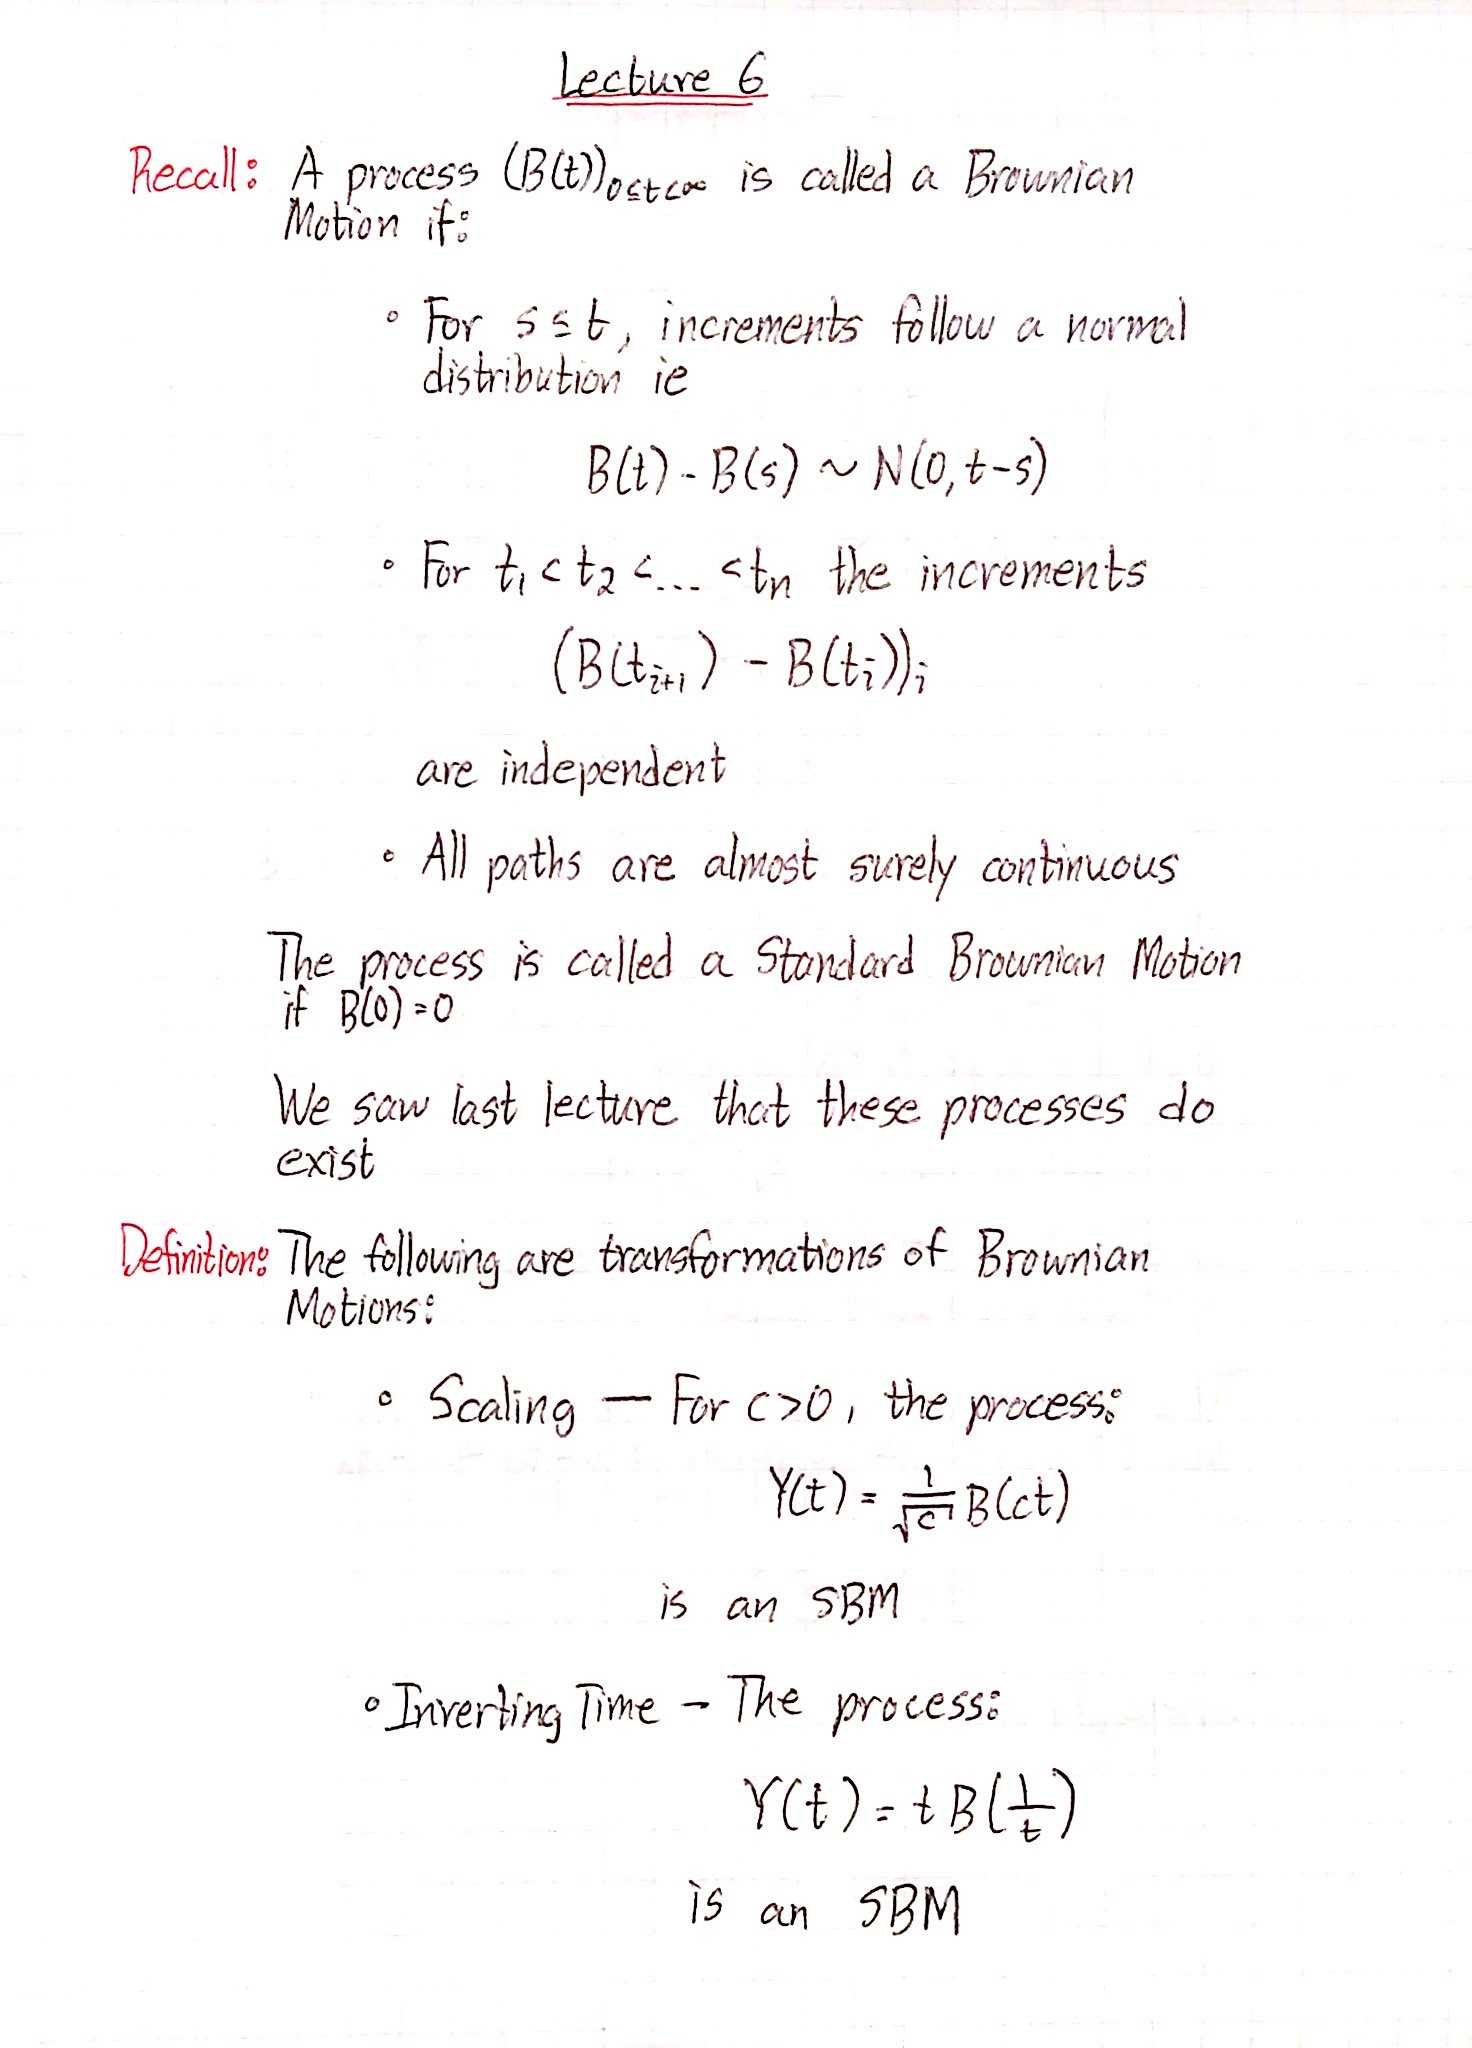 Lecture 6
Recall: A process (B(t))₀≤t<∞ is called a Brownian
Motion if:
∘ For s≤t, increments follow a normal
distribution ie
B(t) - B(s) ~ N(0, t-s)
∘ For t₁<t₂<...<tₙ the increments
(B(tᵢ₊₁) - B(tᵢ))ᵢ
are independent
∘ All paths are almost surely continuous
The process is called a Standard Brownian Motion
if B(0)=0
We saw last lecture that these processes do
exist
Definition: The following are transformations of Brownian
Motions:
∘ Scaling — For c>0, the process:
Y(t) = 1/√c B(ct)
is an SBM
∘ Inverting Time - The process:
Y(t) = t B(1/t)
is an SBM